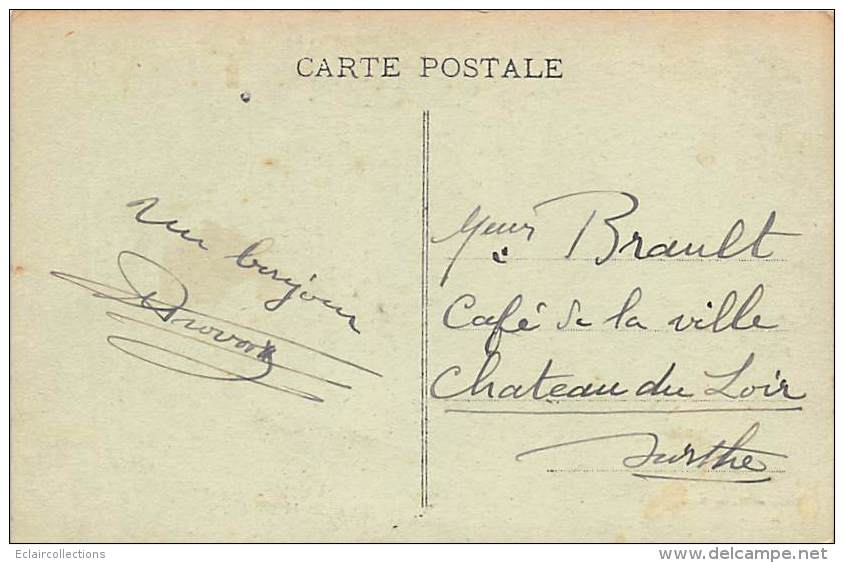 CARTE POSTALE
un bonjour
Meur Brault
Café de la ville
Chateau du Loir
Sarthe
Eclaircollections
© delcampe.net